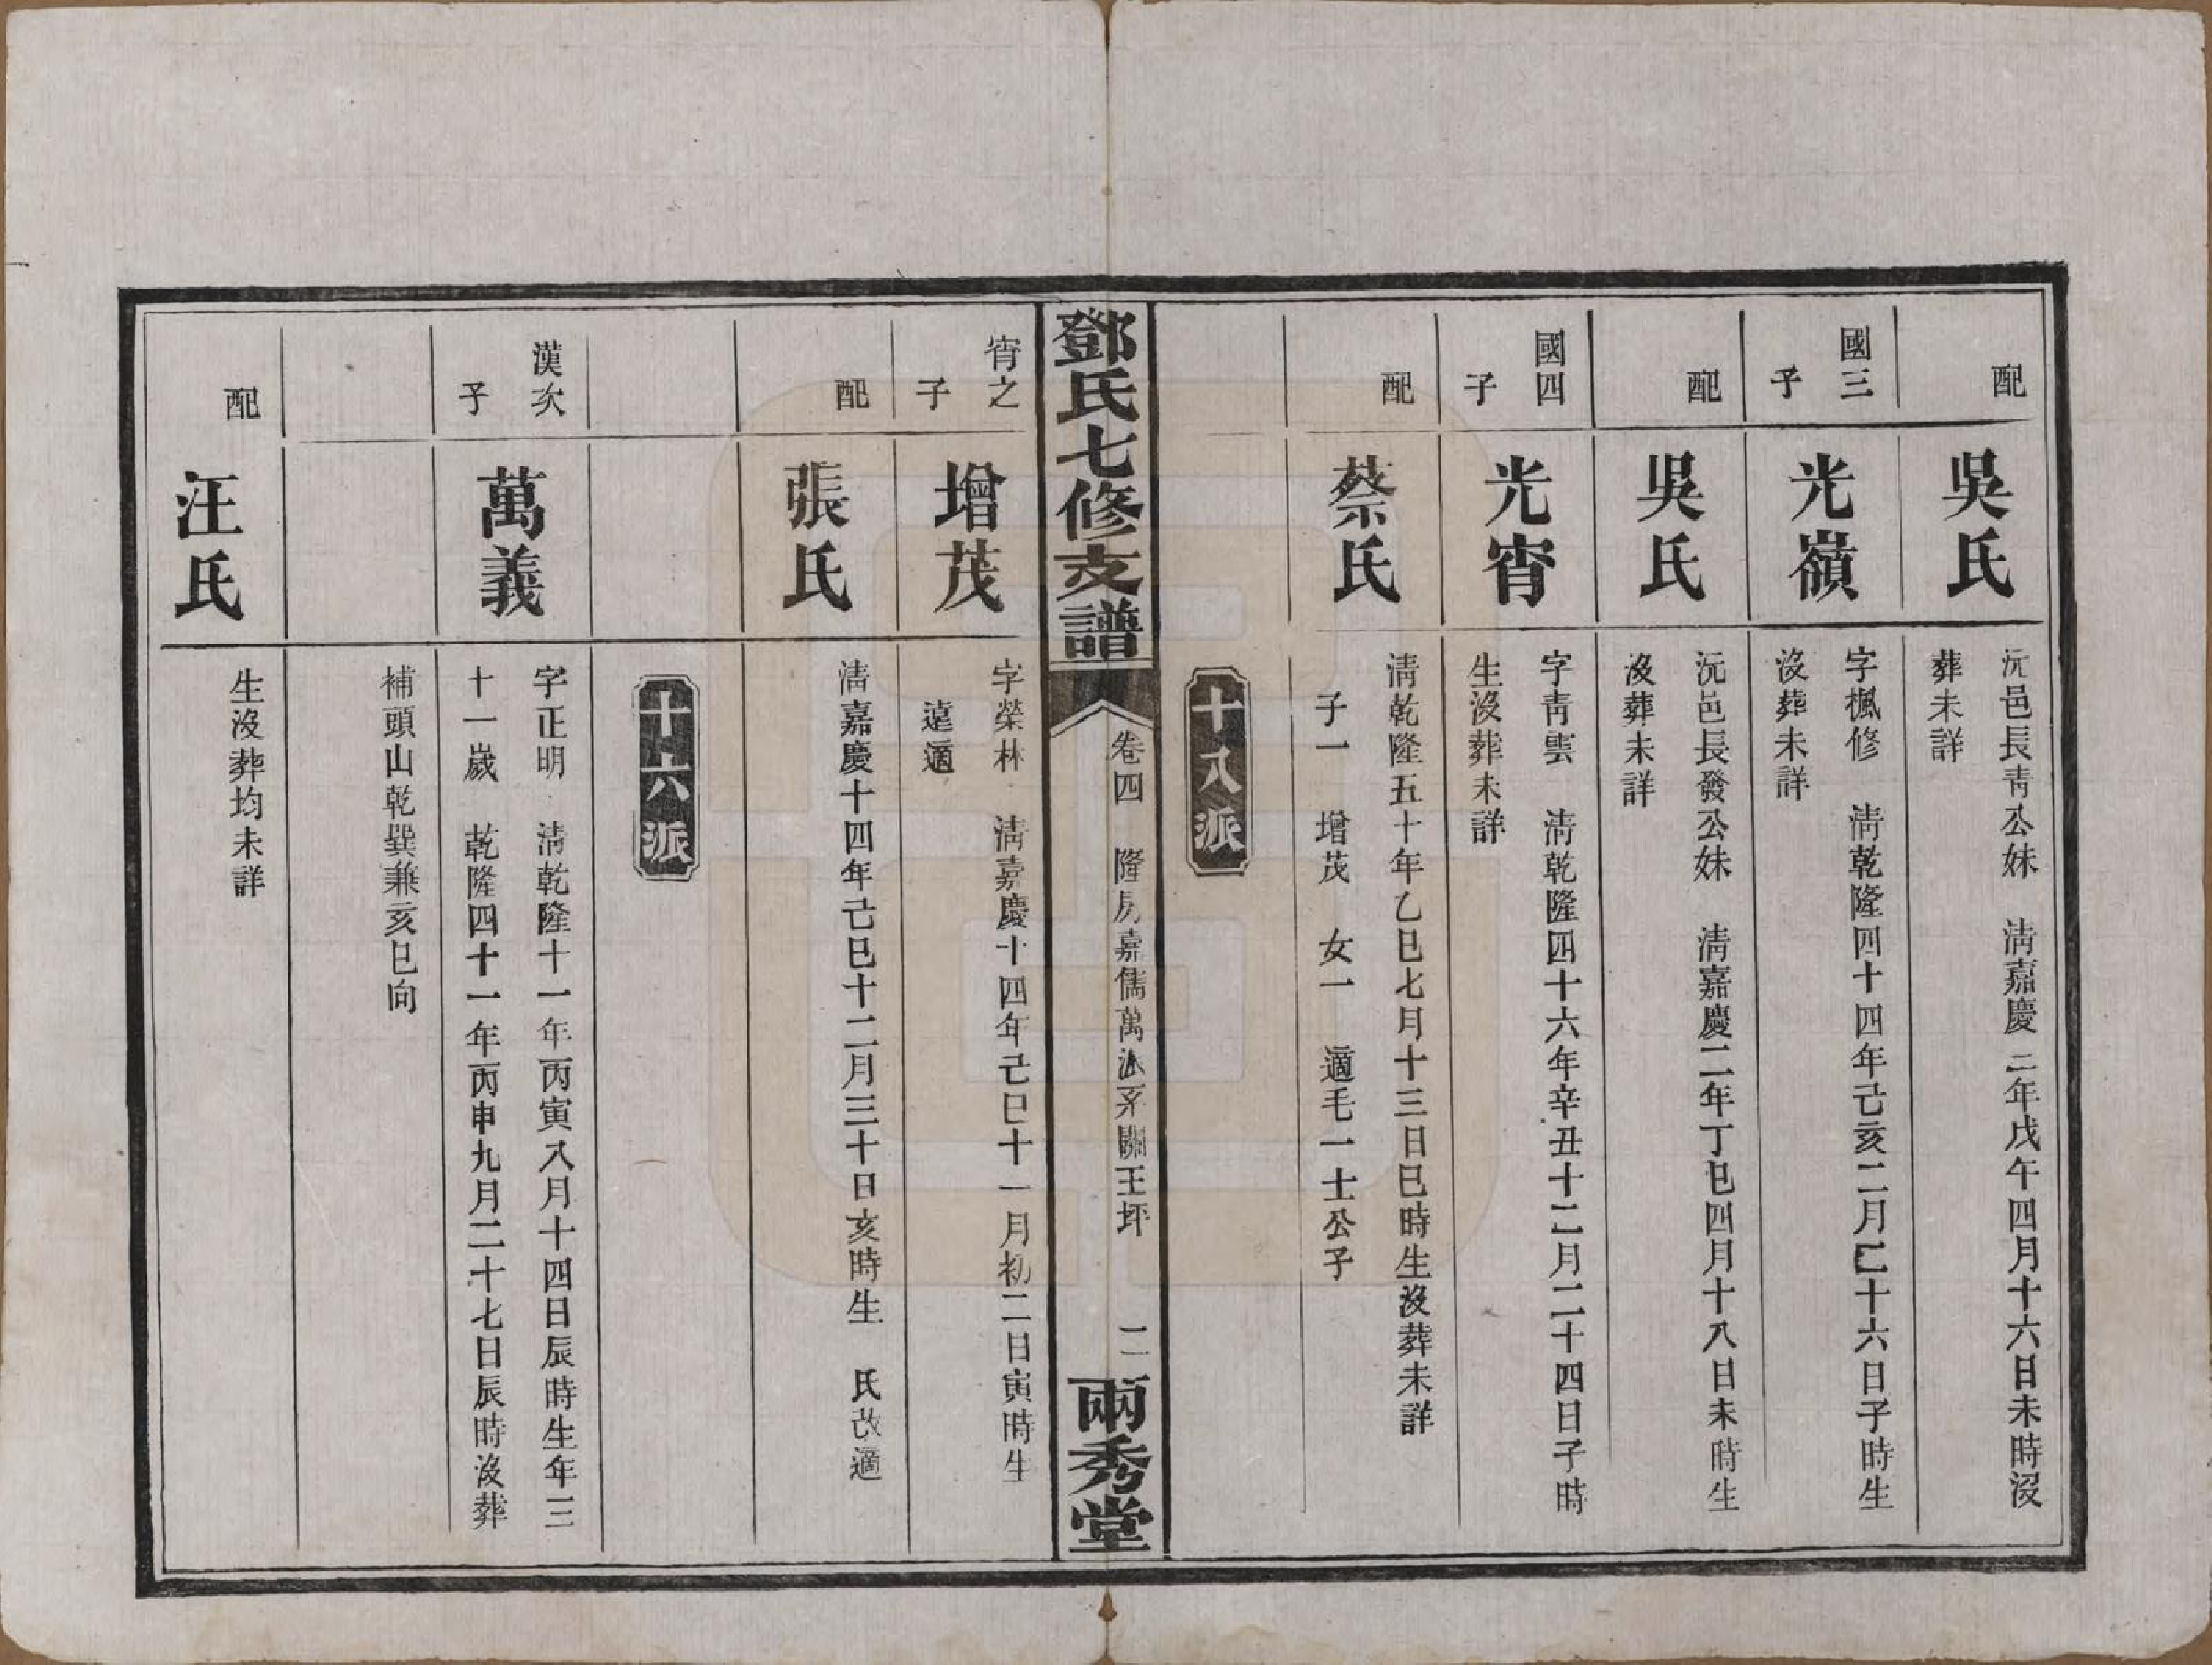 配
吳氏
沅邑長青公妹　清嘉慶二年戊午四月十六日未時沒
葬未詳
國三
子
光嶺
字楓修　清乾隆四十四年己亥二月十六日子時生
沒葬未詳
配
吳氏
沅邑長發公妹　清嘉慶二年丁巳四月十八日未時生
沒葬未詳
國四
子
光宵
字靑雲　清乾隆四十六年辛丑十二月二十四日子時
生沒葬未詳
配
蔡氏
清乾隆五十年乙巳七月十三日巳時生沒葬未詳
子一　增茂　女一　適毛一士公子
十八派
鄧氏七修支譜
卷四　隆房嘉儒萬派系關王坪
二
兩秀堂
宵之
子
增茂
字榮林　清嘉慶十四年己巳十一月初二日寅時生
遠適
配
張氏
清嘉慶十四年己巳十二月三十日亥時生　氏改適
十六派
漢次
子
萬義
字正明　清乾隆十一年丙寅八月十四日辰時生年三
十一歲　乾隆四十一年丙申九月二十七日辰時沒葬
補頭山乾巽兼亥巳向
配
汪氏
生沒葬均未詳